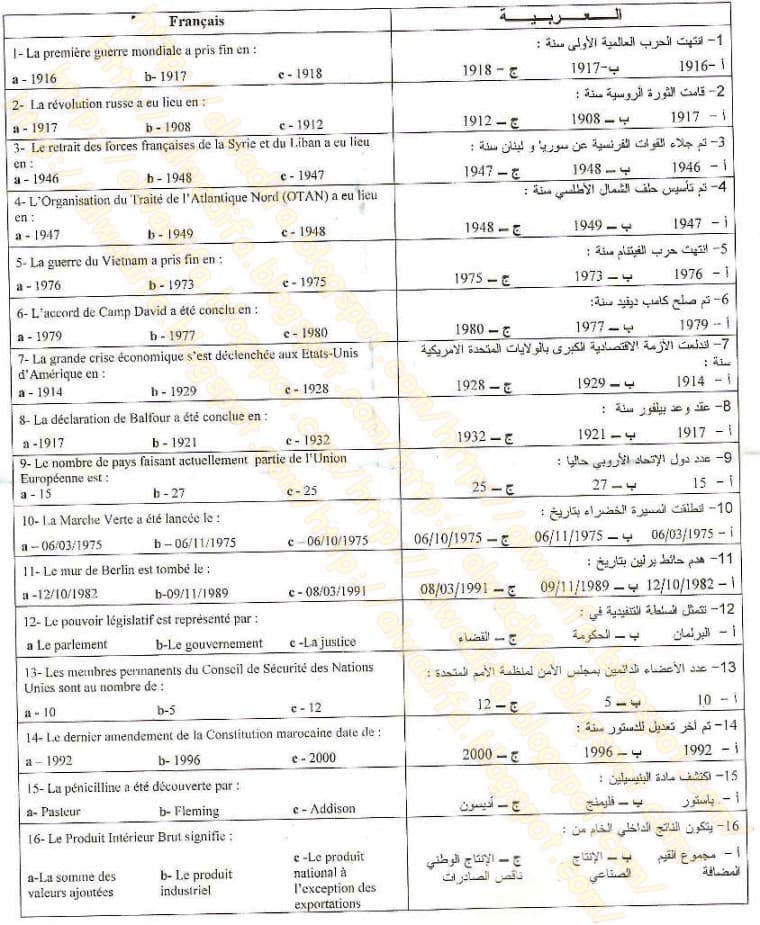 Français
العربية
1- La première guerre mondiale a pris fin en :
a - 1916 b- 1917 c - 1918
1- انتهت الحرب العالمية الأولى سنة :
أ -1916 ب-1917 ج - 1918
2- La révolution russe a eu lieu en :
a - 1917 b - 1908 c - 1912
2- قامت الثورة الروسية سنة :
أ - 1917 ب – 1908 ج – 1912
3- Le retrait des forces françaises de la Syrie et du Liban a eu lieu
en :
a - 1946 b - 1948 c - 1947
3- تم جلاء القوات الفرنسية عن سوريا و لبنان سنة :
أ - 1946 ب – 1948 ج – 1947
4- L'Organisation du Traité de l'Atlantique Nord (OTAN) a eu lieu
en :
a - 1947 b - 1949 c - 1948
4- تم تأسيس حلف الشمال الأطلسي سنة :
أ - 1947 ب – 1949 ج – 1948
5- La guerre du Vietnam a pris fin en :
a - 1976 b - 1973 c - 1975
5- انتهت حرب الفيتنام سنة :
أ - 1976 ب – 1973 ج – 1975
6- L'accord de Camp David a été conclu en :
a - 1979 b - 1977 c - 1980
6- تم صلح كامب ديفيد سنة:
أ – 1979 ب – 1977 ج – 1980
7- La grande crise économique s'est déclenchée aux Etats-Unis
d'Amérique en :
a - 1914 b - 1929 c - 1928
7- اندلعت الأزمة الاقتصادية الكبرى بالولايات المتحدة الامريكية
سنة :
أ – 1914 ب – 1929 ج – 1928
8- La déclaration de Balfour a été conclue en :
a -1917 b - 1921 c - 1932
8- عقد وعد بيلفور سنة :
أ - 1917 ب – 1921 ج – 1932
9- Le nombre de pays faisant actuellement partie de l'Union
Européenne est :
a - 15 b - 27 c - 25
9- عدد دول الإتحاد الأروبي حاليا :
أ - 15 ب – 27 ج – 25
10- La Marche Verte a été lancée le :
a – 06/03/1975 b – 06/11/1975 c – 06/10/1975
10- انطلقت المسيرة الخضراء بتاريخ :
أ – 06/03/1975 ب – 06/11/1975 ج – 06/10/1975
11- Le mur de Berlin est tombé le :
a -12/10/1982 b-09/11/1989 c - 08/03/1991
11- هدم حائط برلين بتاريخ :
أ – 12/10/1982 ب – 09/11/1989 ج – 08/03/1991
12- Le pouvoir législatif est représenté par :
a Le parlement b-Le gouvernement c -La justice
12- تتمثل السلطة التنفيدية في :
أ - البرلمان ب – الحكومة ج – القضاء
13- Les membres permanents du Conseil de Sécurité des Nations
Unies sont au nombre de :
a - 10 b-5 c - 12
13- عدد الأعضاء الدائمين بمجلس الأمن لمنظمة الأمم المتحدة :
أ - 10 ب – 5 ج – 12
14- Le dernier amendement de la Constitution marocaine date de :
a – 1992 b- 1996 c - 2000
14- تم أخر تعديل للدستور سنة :
أ - 1992 ب – 1996 ج – 2000
15- La pénicilline a été découverte par :
a- Pasteur b- Fleming c - Addison
15- اكتشف مادة البنيسيلين :
أ - باستور ب – فليمنج ج – أديسون
16- Le Produit Intérieur Brut signifie :
a-La somme des
valeurs ajoutées
b- Le produit
industriel
c -Le produit
national à
l'exception des
exportations
16- يتكون الناتج الداخلي الخام من :
أ – مجموع القيم
المضافة
ب – الإنتاج
الصناعي
ج – الإنتاج الوطني
ناقص الصادرات